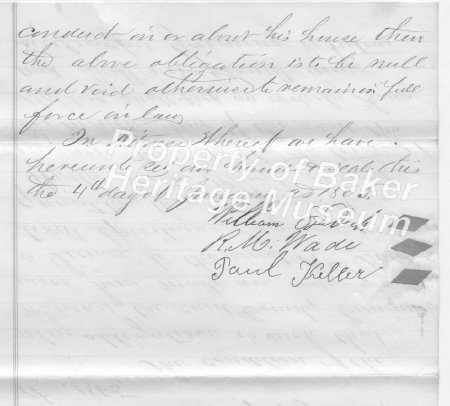 conduct in or about his house then
the above obligation is to be null
and void otherwise to remain in full
force in law
In witness whereof we have
hereunto set our hands & seals this
the 4th day of
William
R. M. Wade
Paul Keller
Property of Baker
Heritage Museum